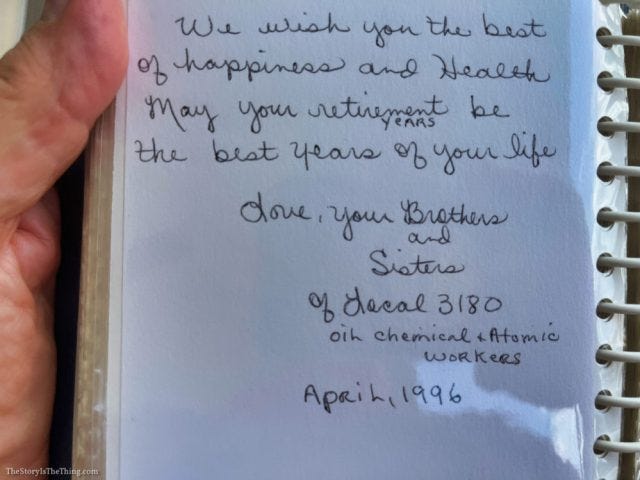 We wish you the best
of happiness and Health
May your retirement be
YEARS
the best years of your life
Love, your Brothers
and
Sisters
of Local 3180
oil chemical & Atomic
WORKERS
April, 1996
TheStoryIsTheThing.com